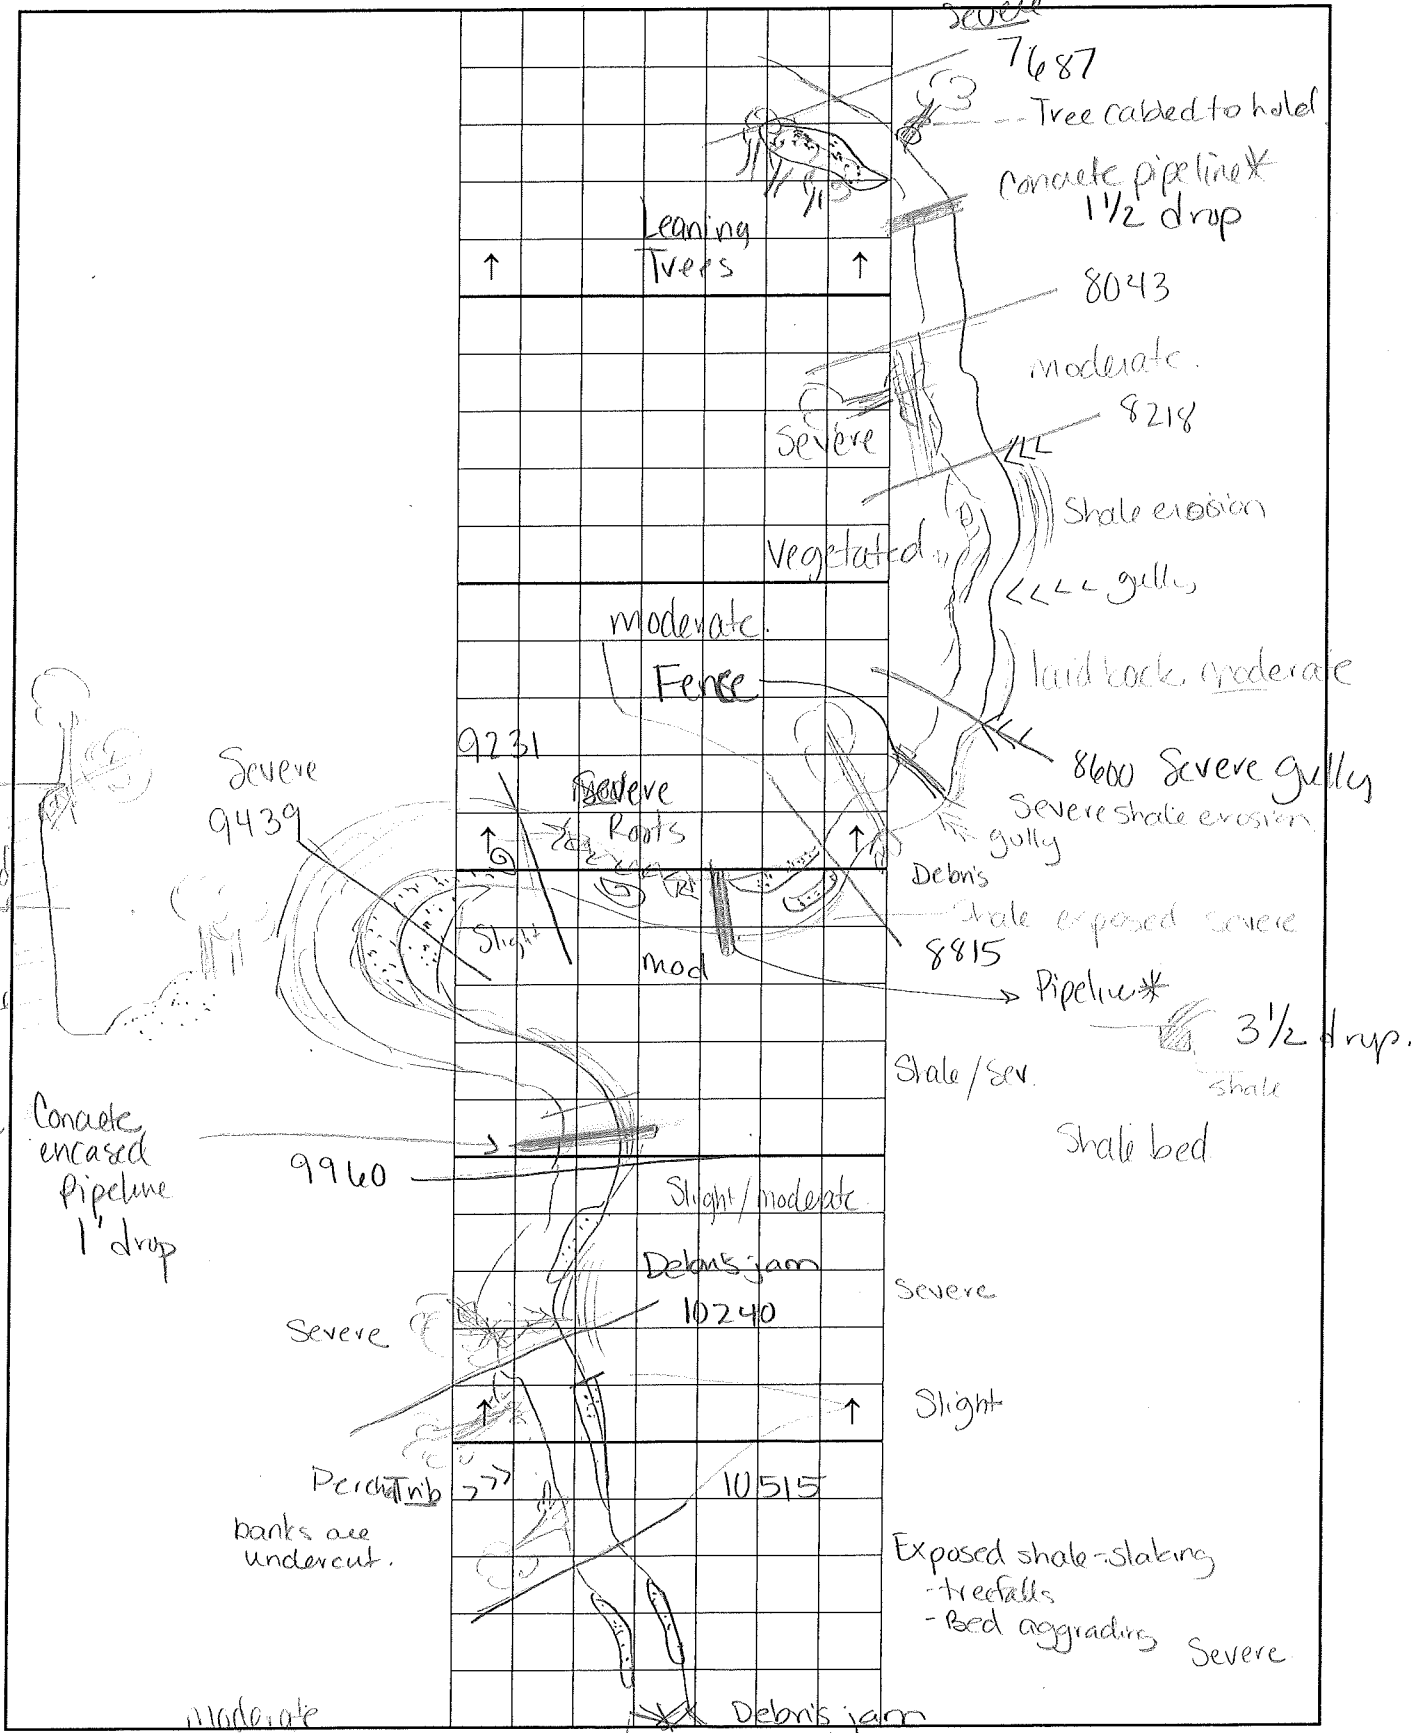 Severe
7687
Tree cabled to hold
Concrete pipeline*
1 1/2 drop
Leaning
Trees
↑ ↑
8043
moderate.
8218
Severe
Shale erosion
Vegetated
<<<< gully
moderate.
laid back moderate
Fence
9231
8600 Severe gully
Severe
9439
Severe
Roots
Severe shale erosion
gully
↑ ↑
Debris
Shale exposed severe
Slight
mod
8815
Pipeline*
3 1/2 drop.
shale
Shale/Sev.
Concrete
encased
Pipeline
1' drop
Shale bed
9960
Slight/moderate
Debris jam
Severe
10240
Severe
↑ ↑
Slight
Perch Trib >>>
10515
banks are
undercut.
Exposed shale-slaking
-treefalls
-Bed aggrading
Severe
moderate
Debris jam